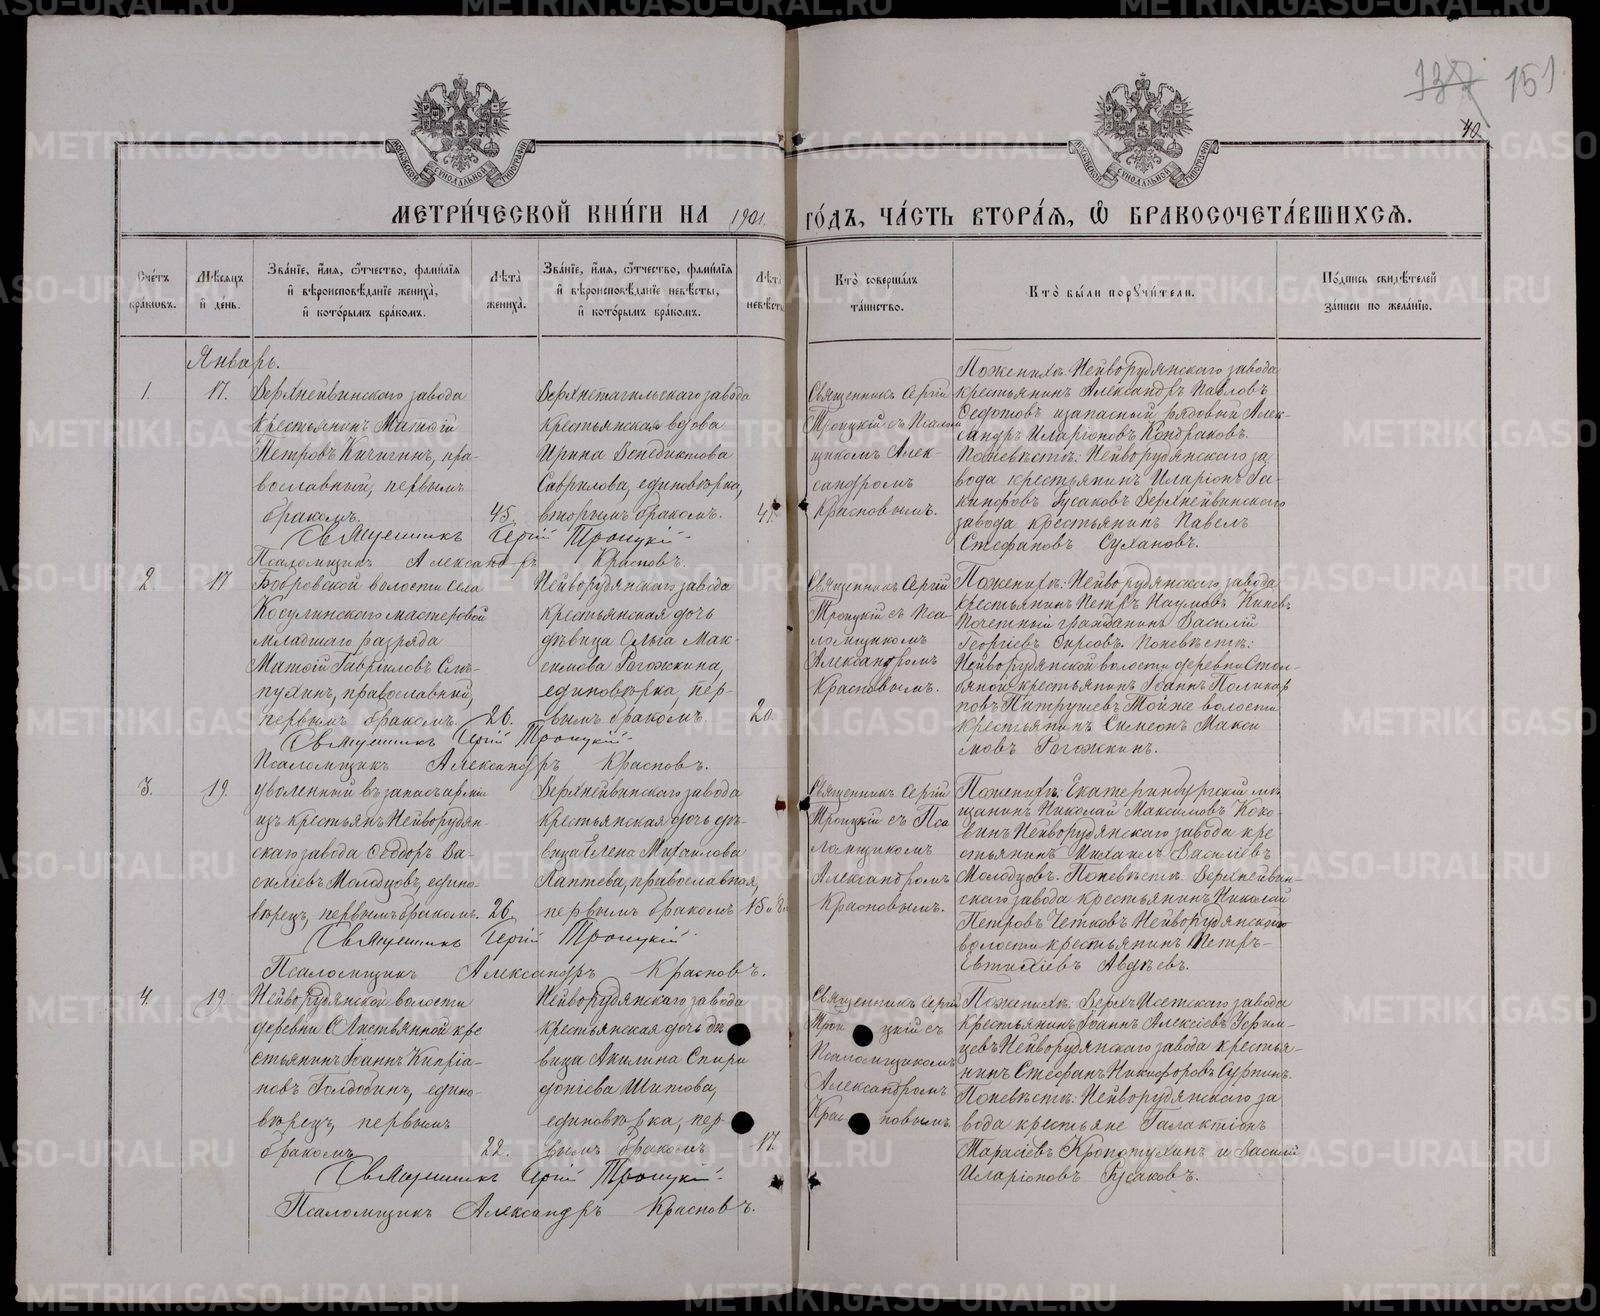 137 151
40
МЕТРИ́ЧЕСКОЙ КНИ́ГИ НА 1901. ГО́ДЪ, ЧА́СТЬ ВТОРА́Я, Ѡ҆ БРАКОСОЧЕТА́ВШИХСЯ.
Сче́тъ бра́кωвъ.
Мѣ́сяцъ и҆ де́нь.
Зва́нїе, и҆́мя, ѻ҆́тчество, фами́лїя
и҆ вѣроисповѣ́данїе жениха̀,
и҆ кото́рымъ бра́комъ.
Лѣта̀ жениха̀.
Зва́нїе, и҆́мя, ѻ҆́тчество, фами́лїя
и҆ вѣроисповѣ́данїе невѣ́сты,
и҆ кото́рымъ бра́комъ.
Лѣта̀ невѣ́сты
Кто̀ соверша́лъ та́инство.
Кто̀ бы́ли порꙋчи́тели.
По́дпись свидѣ́телей за́писи по жела́нїю.
Январь.
1.
17.
Верхнейвинскаго завода
крестьянинъ Матѳiй
Петровъ Кичигинъ, пра-
вославный, первымъ
бракомъ.
45.
Верхнетагильскаго завода
крестьянская вдова
Ирина Венедиктова
Гаврилова, единовѣрка,
вторымъ бракомъ.
41.
Священникъ Сергiй
Троицкiй съ Псалом
щикомъ Алек-
сандромъ
Красновымъ.
По женихѣ: Нейворудянскаго завода
крестьянинъ Александръ Павловъ
Ѳедотовъ и запасный рядовый Алек-
сандръ Иларiоновъ Кондраковъ.
По невѣстѣ: Нейворудянскаго за
вода крестьянинъ Иларiонъ
Русаковъ Верхнейвинскаго
завода крестьянинъ Павелъ
Стефановъ Сухановъ.
Священникъ Сергiй Троицкiй
Псаломщикъ Александръ Красновъ.
2.
17
Бобровской волости села
Косулинскаго мастеровой
младшаго разряда
Матѳiй Гаврiиловъ Слѣ-
пухинъ, православный,
первымъ бракомъ.
26.
Нейворудянскаго завода
крестьянская дочь
дѣвица Ольга Мак-
симова Рогожкина,
единовѣрка, пер-
вымъ бракомъ.
20.
Священникъ Сергiй
Троицкiй съ Пса-
ломщикомъ
Александромъ
Красновымъ.
По женихѣ: Нейворудянскаго завода
крестьянинъ Петръ Наумовъ
Почетный гражданинъ Василiй
Георгiевъ По невѣстѣ:
Нейворудянской волости деревни Стол-
бяной крестьянинъ Iоаннъ Поликар
повъ Патрушевъ Той же волости
крестьянинъ Симеонъ Макси
мовъ Рогожкинъ.
Священникъ Сергiй Троицкiй
Псаломщикъ Александръ Красновъ.
3.
19
уволенный въ запасъ армiи
изъ крестьянъ Нейворудян-
скаго завода Ѳеодоръ Ва-
силiевъ Молодцовъ, едино-
вѣрецъ, первымъ бракомъ.
26
Верхнейвинскаго завода
крестьянская дочь дѣ-
вица Елена Михаилова
Лаптева, православная,
первымъ бракомъ
Священникъ Сергiй
Троицкiй съ Пса
ломщикомъ
Александромъ
Красновымъ.
По женихѣ: Екатеринбургскiй мѣ
щанинъ Николай Максимовъ Коко-
винъ Нейворудянскаго завода кре
стьянинъ Михаилъ Василiевъ
Молодцовъ. По невѣстѣ: Верхнейвин-
скаго завода крестьянинъ Николай
Петровъ Четковъ Нейворудянской
волости крестьянинъ Петръ
Евтихiевъ Авдѣевъ.
Священникъ Сергiй Троицкiй
Псаломщикъ Александръ Красновъ.
4.
19.
Нейворудянской волости
деревни Листвянной кре
стьянинъ Iоаннъ Кипрiа-
новъ Голдобинъ, едино-
вѣрецъ, первымъ
бракомъ
22.
Нейворудянскаго завода
крестьянская дочь дѣ
вица Акилина Спири
донiева Шитова,
единовѣрка, пер-
вымъ бракомъ
17.
Священникъ Сергiй
Троицкiй съ
Псаломщикомъ
Александромъ
Красновымъ.
По женихѣ: Верхъ Исетскаго завода
крестьянинъ Iоаннъ Алексiевъ Уфим-
цевъ Нейворудянскаго завода крестья-
нинъ Стефанъ Никифоровъ Сурнинъ.
По невѣстѣ: Нейворудянскаго за
вода крестьяне Галактiонъ
Тарасiевъ Кропотухинъ и Василiй
Иларiоновъ Русаковъ.
Священникъ Сергiй Троицкiй
Псаломщикъ Александръ Красновъ.
METRIKI.GASO-URAL.RU